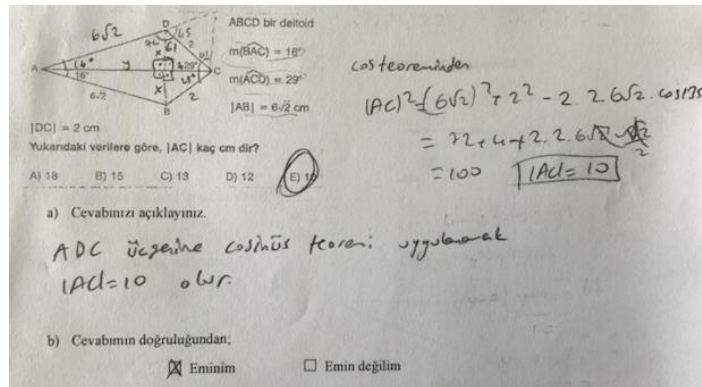 ABCD bir deltoid
m(BAC) = 16°
m(ACD) = 29°
|AB| = 6√2 cm
|DC| = 2 cm
Yukarıdaki verilere göre, |AC| kaç cm dir?
A) 18 B) 15 C) 13 D) 12 E) 10
D
6√2
65
74
61
2
x
A
16°
16°
y
29°
61
C
29°
x
6√2
2
B
cos teoreminden
|AC|² = (6√2)² + 2² - 2.2.6√2.cos135
= 72 + 4 + 2.2.6√2.√2/2
= 100 |AC| = 10
a) Cevabınızı açıklayınız.
ADC üçgenine cosinüs teoremi uygulanarak
|AC| = 10 olur.
b) Cevabımın doğruluğundan;
Eminim Emin değilim